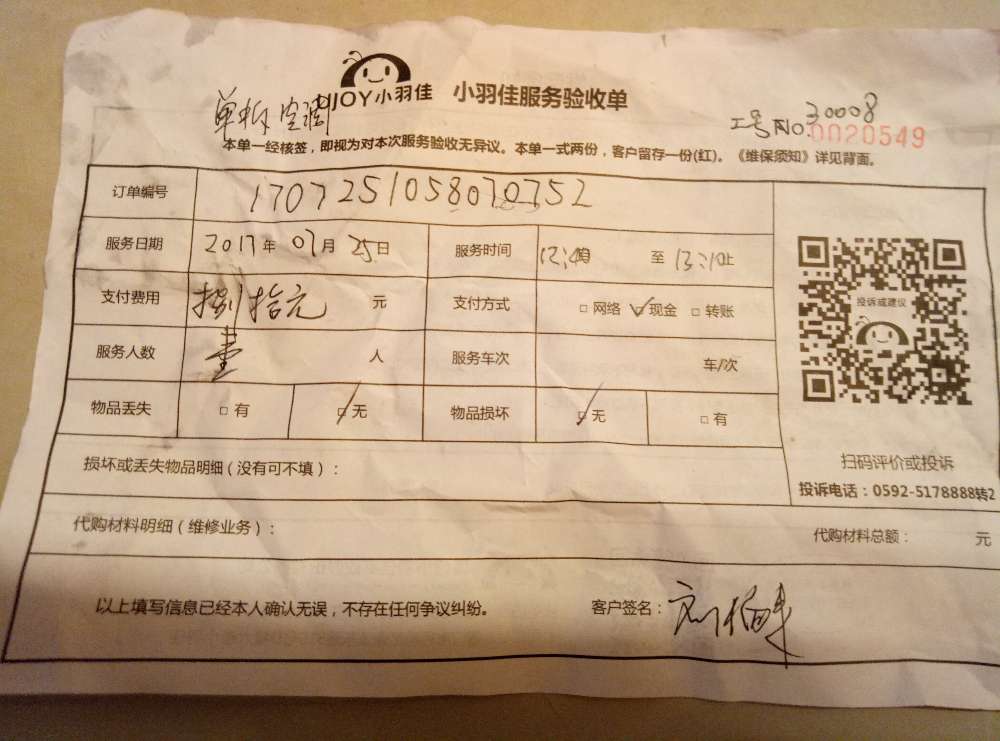 OJOY小羽佳 小羽佳服务验收单
单拆空调
工号 30008
NO.0020549
本单一经核签，即视为对本次服务验收无异议。本单一式两份，客户留存一份(红)。《维保须知》详见背面。
订单编号 1707251058070752
服务日期 2017年 07月 25日 服务时间 12:40 至 13:10止
支付费用 捌拾元 元 支付方式 □ 网络 ☑ 现金 □ 转账
服务人数 壹 人 服务车次 车/次
物品丢失 □ 有 ☑ 无 物品损坏 ☑ 无 □ 有
投诉或建议
扫码评价或投诉
投诉电话：0592-5178888转2
损坏或丢失物品明细（没有可不填）：
代购材料明细（维修业务）： 代购材料总额： 元
以上填写信息已经本人确认无误，不存在任何争议纠纷。 客户签名：